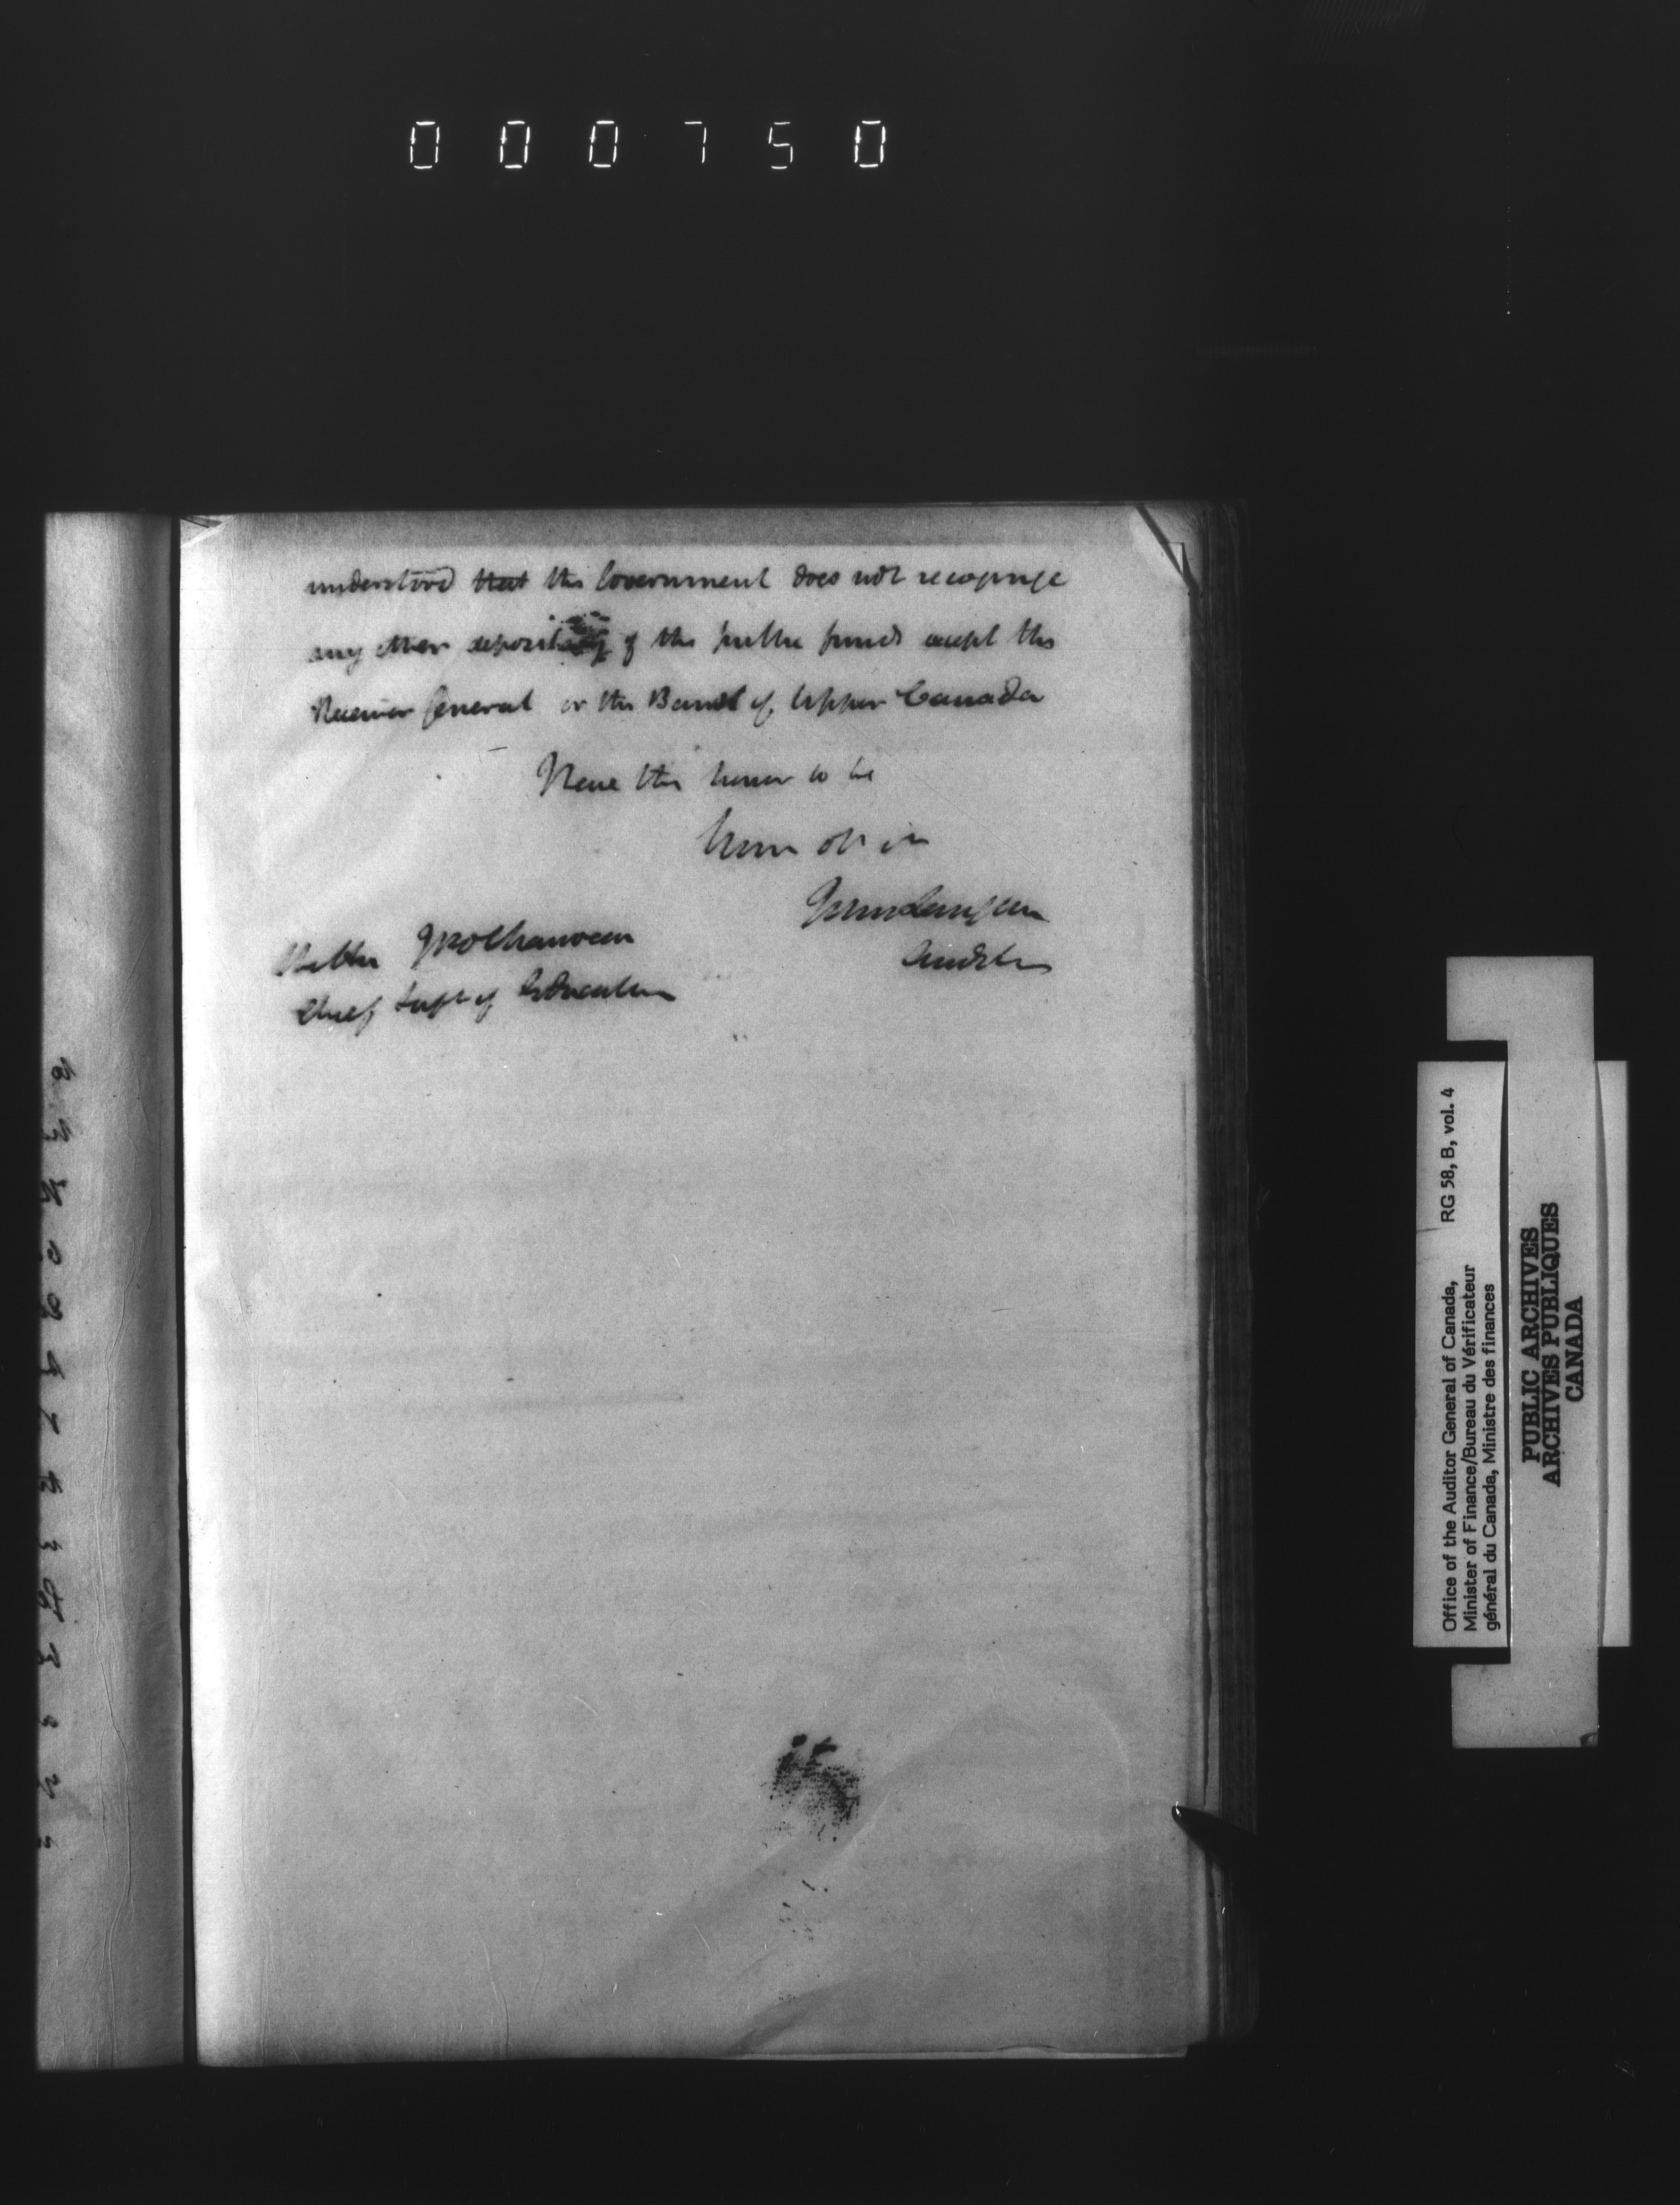 000750
understood that the Government does not recognize
any other depositary of the public funds except the
Receiver General or the Bank of Upper Canada
I have the honor to be
John Langton
Auditor
The Hon P J O Chauveau
Chief Supt of Education
Office of the Auditor General of Canada, RG 58, B, vol. 4
Minister of Finance/Bureau du Vérificateur
général du Canada, Ministre des finances
PUBLIC ARCHIVES
ARCHIVES PUBLIQUES
CANADA